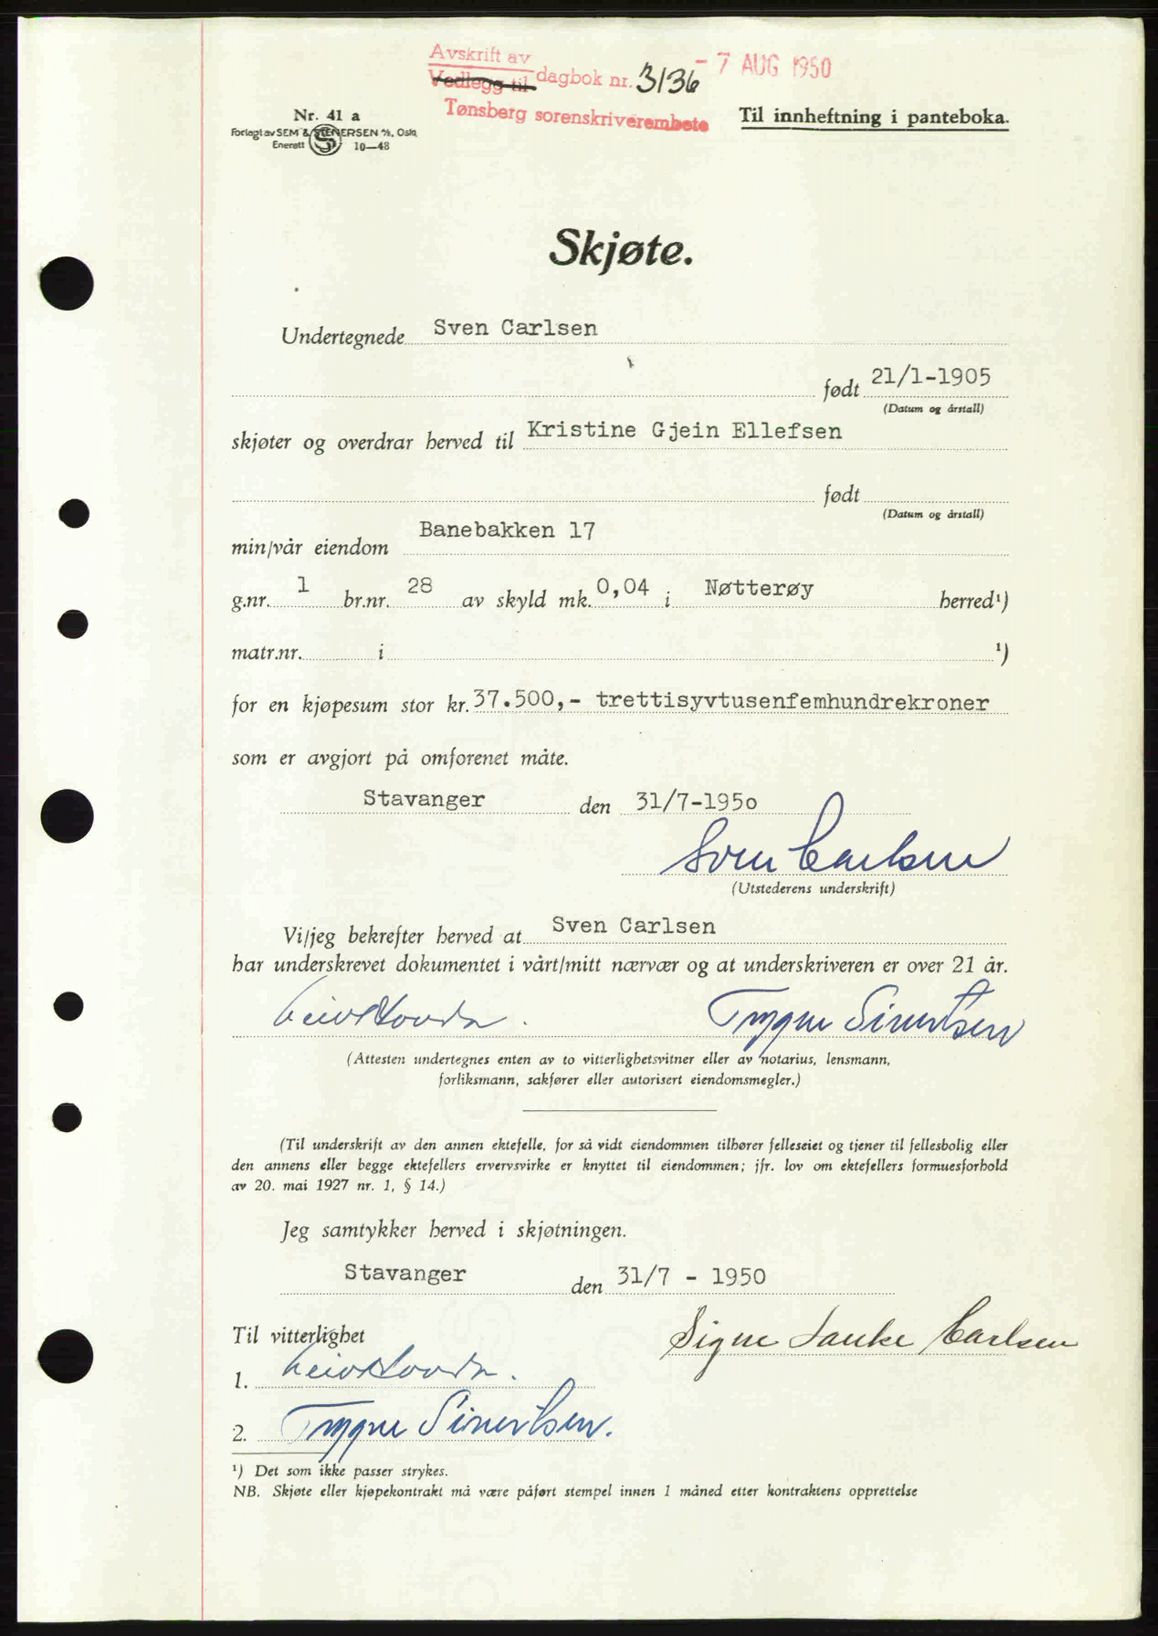 Avskrift av
Vedlegg til dagbok nr. 3136 - 7 AUG 1950
Tønsberg sorenskriverembete
Nr. 41 a
Forlagt av SEM & STENERSEN A/S, Oslo
Enerett 10—48
Til innheftning i panteboka.
Skjøte.
Undertegnede Sven Carlsen
født 21/1-1905
(Datum og årstall)
skjøter og overdrar herved til Kristine Gjein Ellefsen
født
(Datum og årstall)
min/vår eiendom Banebakken 17
g.nr. 1 br.nr. 28 av skyld mk. 0,04 i Nøtterøy herred¹)
matr.nr. i ¹)
for en kjøpesum stor kr. 37.500,- trettisyvtusenfemhundrekroner
som er avgjort på omforenet måte.
Stavanger den 31/7-1950
Sven Carlsen
(Utstederens underskrift)
Vi/jeg bekrefter herved at Sven Carlsen
har underskrevet dokumentet i vårt/mitt nærvær og at underskriveren er over 21 år.
Trygve Sivertsen
(Attesten undertegnes enten av to vitterlighetsvitner eller av notarius, lensmann,
forliksmann, sakfører eller autorisert eiendomsmegler.)
(Til underskrift av den annen ektefelle, for så vidt eiendommen tilhører felleseiet og tjener til fellesbolig eller
den annens eller begge ektefellers ervervsvirke er knyttet til eiendommen; jfr. lov om ektefellers formuesforhold
av 20. mai 1927 nr. 1, § 14.)
Jeg samtykker herved i skjøtningen.
Stavanger den 31/7 - 1950
Til vitterlighet
Signe Lauke Carlsen
1.
2. Trygve Sivertsen.
¹) Det som ikke passer strykes.
NB. Skjøte eller kjøpekontrakt må være påført stempel innen 1 måned etter kontraktens opprettelse